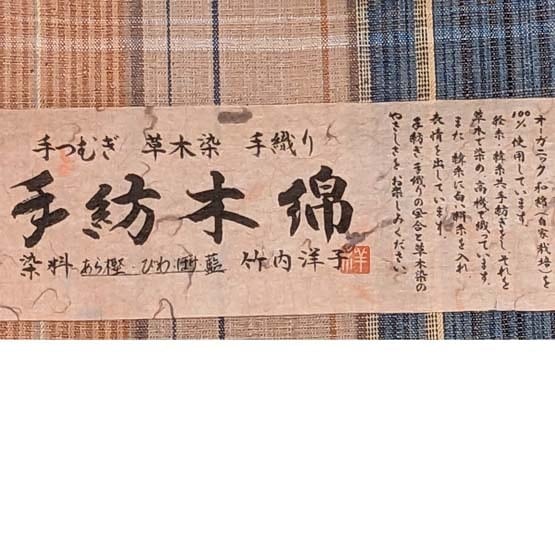 手つむぎ　草木染　手織り
手紡木綿
染料 あら樫・びわ・・藍 竹内洋子
洋
オーガニック和綿(自家栽培)を
100% 使用しています。
経糸・緯糸共手紡ぎをし それを
草木で染め 高機で織っています。
また 緯糸に白い綿糸を入れ
表情を出しています。
手紡ぎ・手織りの風合と草木染の
やさしさを お楽しみください